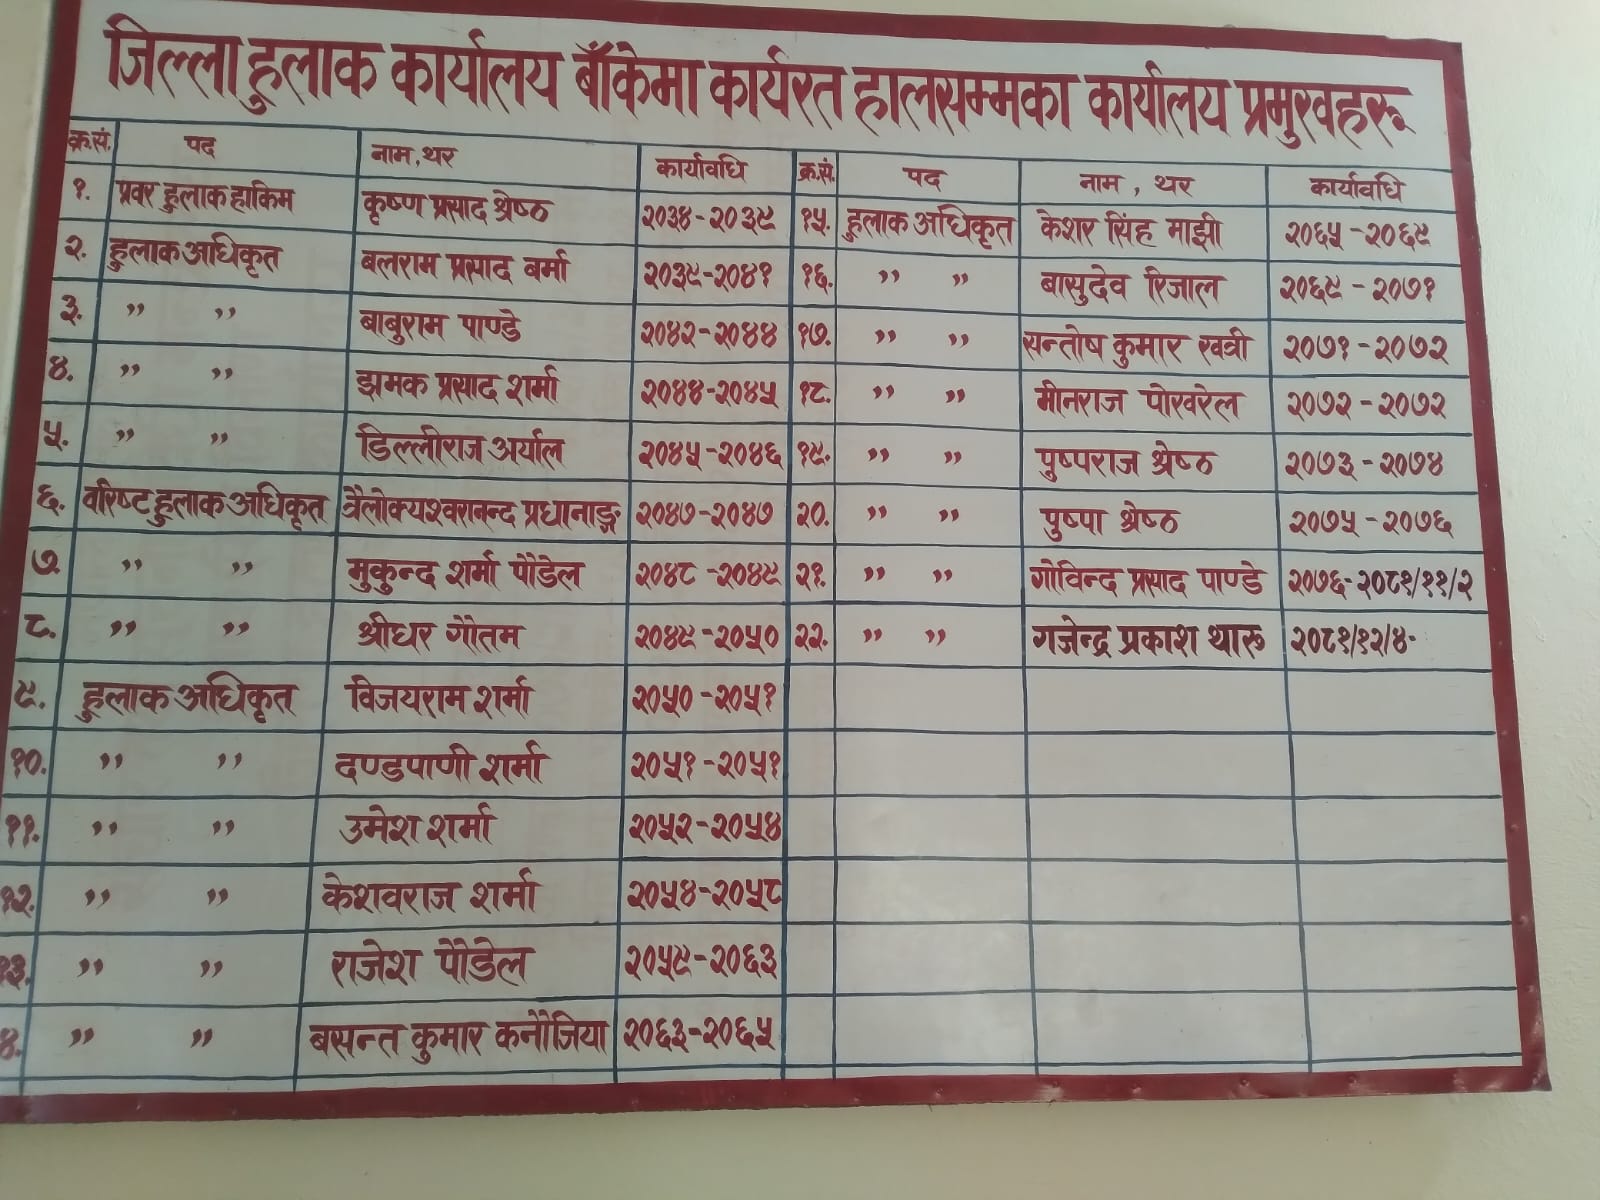 जिल्ला हुलाक कार्यालय बाँकेमा कार्यरत हालसम्मका कार्यालय प्रमुखहरू
क्र.सं. पद नाम, थर कार्यावधि
१. प्रवर हुलाक हाकिम कृष्ण प्रसाद श्रेष्ठ २०३४-२०३९
२. हुलाक अधिकृत बलराम प्रसाद बर्मा २०३९-२०४१
३. ” ” बाबुराम पाण्डे २०४२-२०४४
४. ” ” झमक प्रसाद शर्मा २०४४-२०४५
५. ” ” डिल्लीराज अर्याल २०४५-२०४६
६. वरिष्ट हुलाक अधिकृत त्रैलोक्यश्वरानन्द प्रधानाङ्ग २०४७-२०४७
७. ” ” मुकुन्द शर्मा पौडेल २०४८-२०४९
८. ” ” श्रीधर गौतम २०४९-२०५०
९. हुलाक अधिकृत विजयराम शर्मा २०५०-२०५१
१०. ” ” दण्डपाणी शर्मा २०५१-२०५१
११. ” ” उमेश शर्मा २०५२-२०५४
१२. ” ” केशवराज शर्मा २०५४-२०५८
१३. ” ” राजेश पौडेल २०५९-२०६३
४. ” ” बसन्त कुमार कनौजिया २०६३-२०६५
क्र.सं. पद नाम, थर कार्यावधि
१५. हुलाक अधिकृत केशर सिंह माझी २०६५-२०६९
१६. ” ” बासुदेव रिजाल २०६९-२०७१
१७. ” ” सन्तोष कुमार खत्री २०७१-२०७२
१८. ” ” मीनराज पोखरेल २०७२-२०७२
१९. ” ” पुष्पराज श्रेष्ठ २०७३-२०७४
२०. ” ” पुष्पा श्रेष्ठ २०७५-२०७६
२१. ” ” गोविन्द प्रसाद पाण्डे २०७६-२०८१/११/२
२२. ” ” गजेन्द्र प्रकाश थारू २०८१/१२/४-